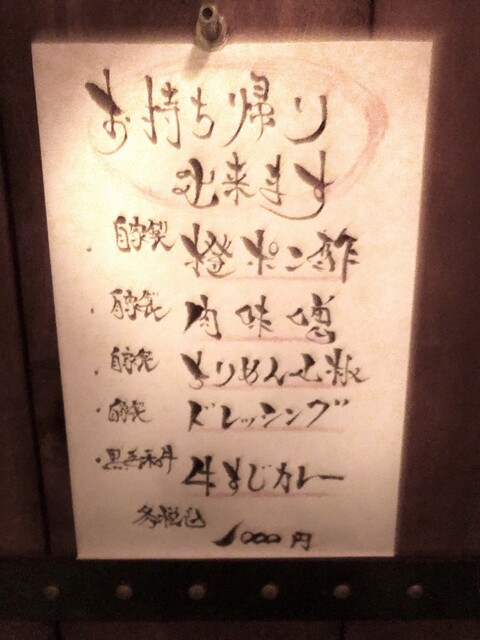 お持ち帰り
出来ます
・自家製 橙ポン酢
・自家製 肉味噌
・自家製 ちりめん山椒
・自家製 ドレッシング
・黒毛和牛 牛すじカレー
各税込 1000円